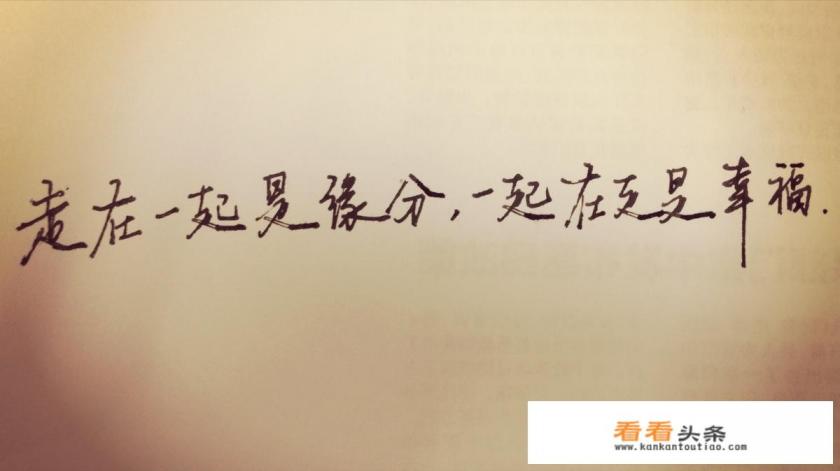 走在一起是缘分，一起在走是幸福.
看看头条
www.kankantoutiao.com